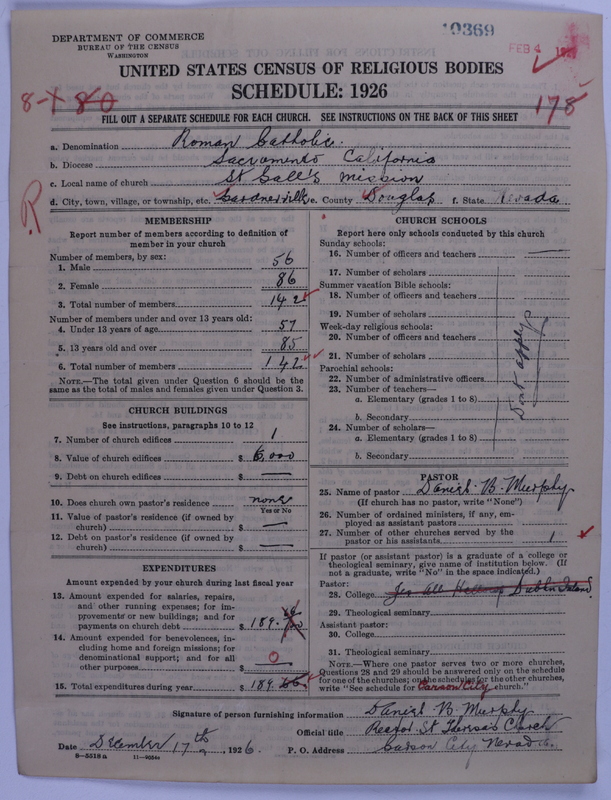 DEPARTMENT OF COMMERCE
BUREAU OF THE CENSUS
WASHINGTON
10369
FEB 4
UNITED STATES CENSUS OF RELIGIOUS BODIES
SCHEDULE: 1926
8-1 80
178
FILL OUT A SEPARATE SCHEDULE FOR EACH CHURCH. SEE INSTRUCTIONS ON THE BACK OF THIS SHEET
a. Denomination Roman Catholic.
b. Diocese Sacramento California
c. Local name of church St Gall's Mission
d. City, town, village, or township, etc. Gardnerville e. County Douglas f. State Nevada
R
MEMBERSHIP
Report number of members according to definition of
member in your church
Number of members, by sex:
1. Male 56
2. Female 86
3. Total number of members 142
Number of members under and over 13 years old:
4. Under 13 years of age 57
5. 13 years old and over 85
6. Total number of members 142
NOTE.—The total given under Question 6 should be
same as the total of males and females given under Question 3.
CHURCH BUILDINGS
See instructions, paragraphs 10 to 12
7. Number of church edifices 1
8. Value of church edifices $ 6,000
9. Debt on church edifices $ —
10. Does church own pastor's residence none
Yes or No
11. Value of pastor's residence (if owned by
church) $ —
12. Debt on pastor's residence (if owned by
church) $ —
EXPENDITURES
Amount expended by your church during last fiscal year
13. Amount expended for salaries, repairs,
and other running expenses; for im-
provements or new buildings; and for
payments on church debt $ 189.
14. Amount expended for benevolences, in-
cluding home and foreign missions; for
denominational support; and for all
other purposes $ 0
15. Total expenditures during year $ 189.
CHURCH SCHOOLS
Report here only schools conducted by this church
Sunday schools:
16. Number of officers and teachers —
17. Number of scholars
Summer vacation Bible schools:
18. Number of officers and teachers
19. Number of scholars
Week-day religious schools:
20. Number of officers and teachers
21. Number of scholars
Parochial schools:
22. Number of administrative officers
23. Number of teachers—
a. Elementary (grades 1 to 8)
b. Secondary
24. Number of scholars—
a. Elementary (grades 1 to 8)
b. Secondary
Dont apply
PASTOR
25. Name of pastor Daniel B. Murphy
(If church has no pastor, write "None")
26. Number of ordained ministers, if any, em-
ployed as assistant pastors
27. Number of other churches served by the
pastor or his assistants 1
If pastor (or assistant pastor) is a graduate of a college or
theological seminary, give name of institution below. (If
not a graduate, write "No" in the space indicated.)
Pastor:
28. College Yes All Hallows Dublin Ireland
29. Theological seminary
Assistant pastor:
30. College
31. Theological seminary
NOTE.—Where one pastor serves two or more churches,
Questions 28 and 29 should be answered only on the schedule
for one of the churches; on the schedules for the other churches,
write "See schedule for Carson City church."
Signature of person furnishing information Daniel B. Murphy
Official title Rector St Theresa's Church
Date December 17th, 1926. P. O. Address Carson City Nevada.
8-5518a 11-9054a